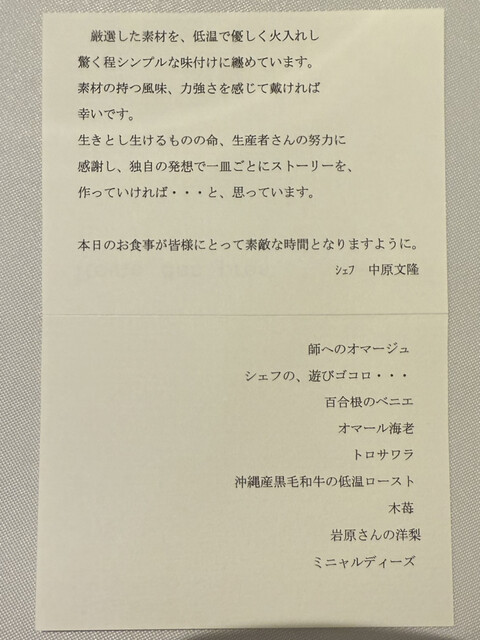 厳選した素材を、低温で優しく火入れし
驚く程シンプルな味付けに纏めています。
素材の持つ風味、力強さを感じて戴ければ
幸いです。
生きとし生けるものの命、生産者さんの努力に
感謝し、独自の発想で一皿ごとにストーリーを、
作っていければ・・・と、思っています。
本日のお食事が皆様にとって素敵な時間となりますように。
ｼｪﾌ　中原文隆
師へのオマージュ
シェフの、遊びゴコロ・・・
百合根のベニエ
オマール海老
トロサワラ
沖縄産黒毛和牛の低温ロースト
木苺
岩原さんの洋梨
ミニャルディーズ